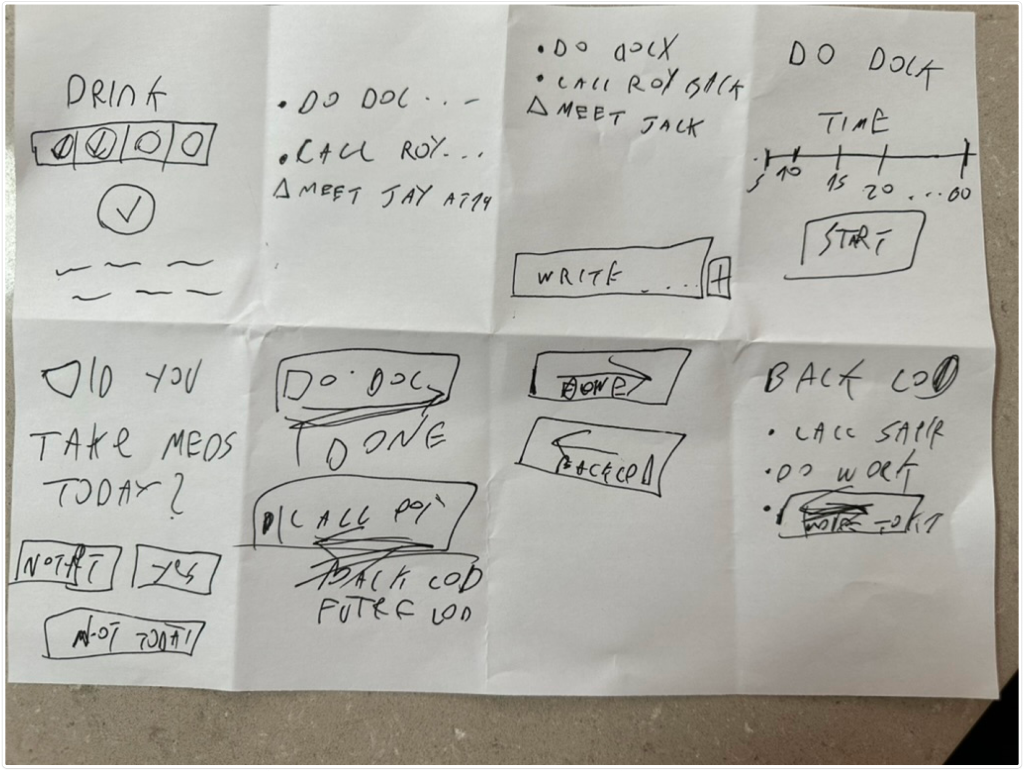 DRINK
• DO DOC....
• CALL ROY...
△ MEET JAY AT 14
• DO DOCK
• CALL ROY BACK
△ MEET JACK
WRITE ....
+
DO DOCK
TIME
5 10 15 20 ... 60
START
DID YOU
TAKE MEDS
TODAY?
NOT YET
YES
NOT TODAY
DO DOC
DONE
CALL ROY
BACK LOD
FUTRE LOD
DONE
BACK LOD
BACK LOD
• CALL SAPIR
• DO WORK